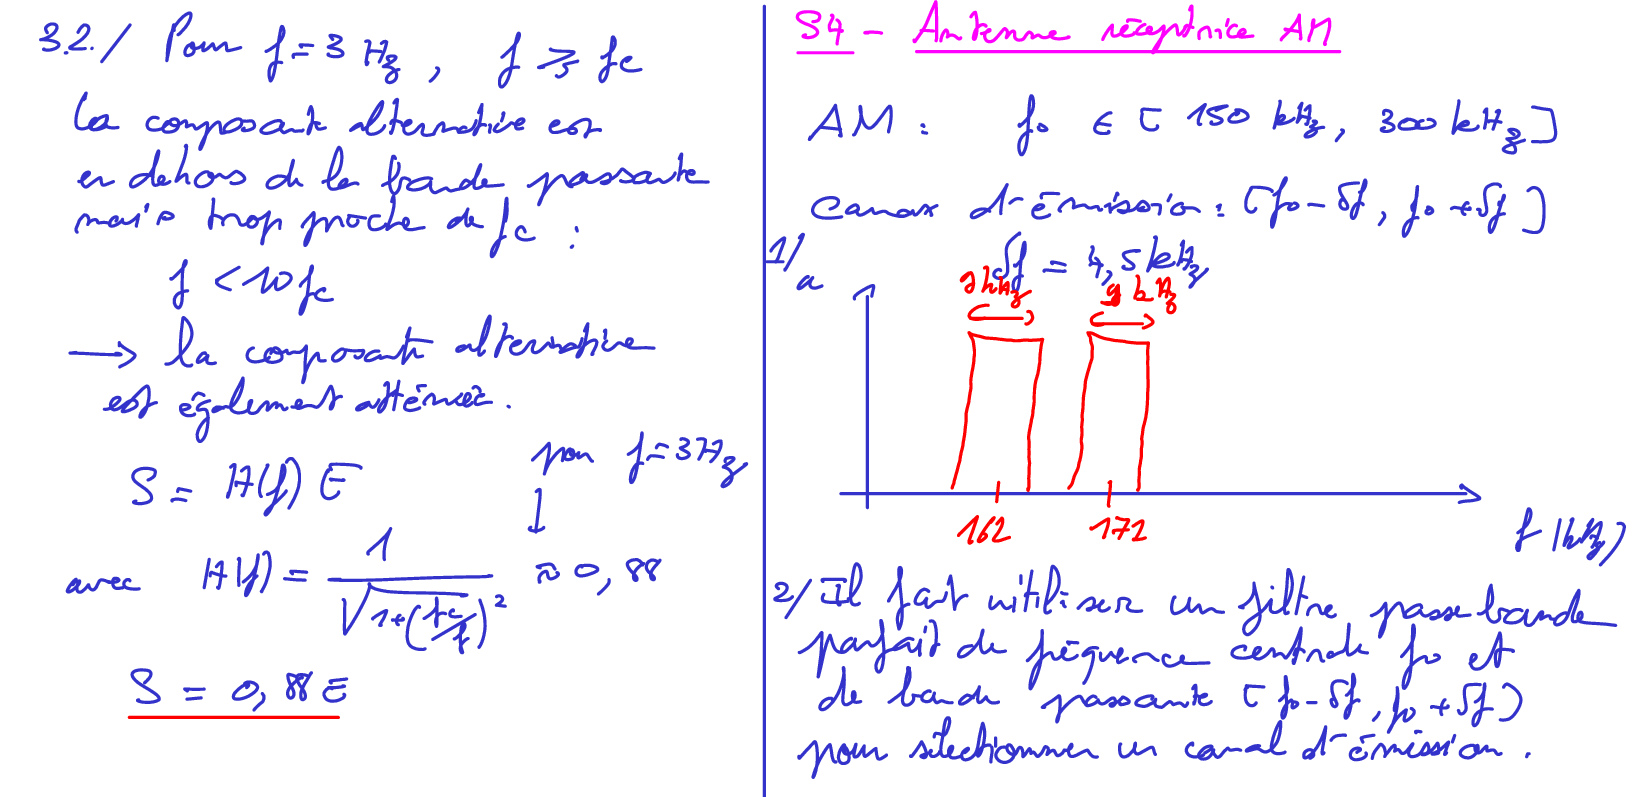 3.2./ Pour f = 3 Hz, f ⩾ fc
La composante alternative est
en dehors de la bande passante
mais trop proche de fc :
f < 10 fc
→ la composante alternative
est également atténuée.
S = H(f) E
pour f = 3 Hz
↓
avec H(f) = 1 / √(1+(fc/f)²) ≈ 0,88
S = 0,88 E
S4 - Antenne réceptrice AM
AM : f0 ∈ [150 kHz, 300 kHz]
Canax d'émission : [f0 - δf, f0 + δf]
1/ δf = 4,5 kHz
a
9 kHz 9 kHz
162 172
f (kHz)
2/ Il fait utiliser un filtre passe bande
parfait de fréquence centrale f0 et
de bande passante [f0 - δf, f0 + δf]
pour sélectionner un canal d'émission.